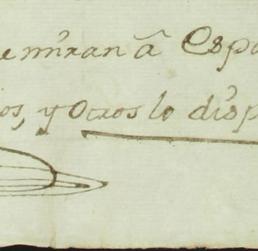 e miran â Espa
os, y Otros lo disp